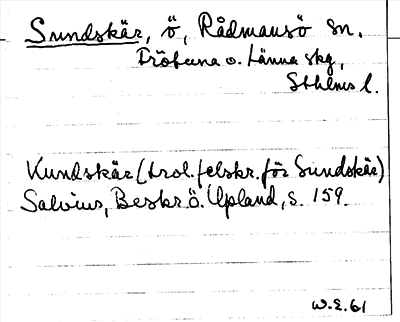 Sundskär, ö, Rådmansö sn.
Frötuna o. Länna skg,
Sthlms l.
Kundskär (trol. felskr. för Sundskär)
Salvius, Beskr. Ö. Upland, s. 159.
W.E. 61